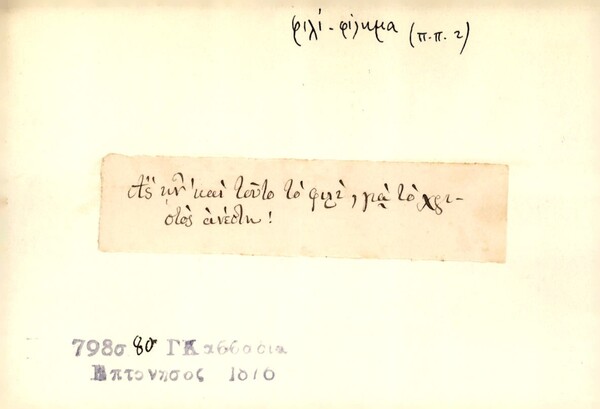 φιλί - φίλημα (π.π. 2)
Ἂς ᾖν' καὶ τοῦτο τὸ φιλὶ, μὰ τὸ χρι-
στὸς ἀνέστη!
798σ 80 ΓΚαββαδια
Επτονησος 1876